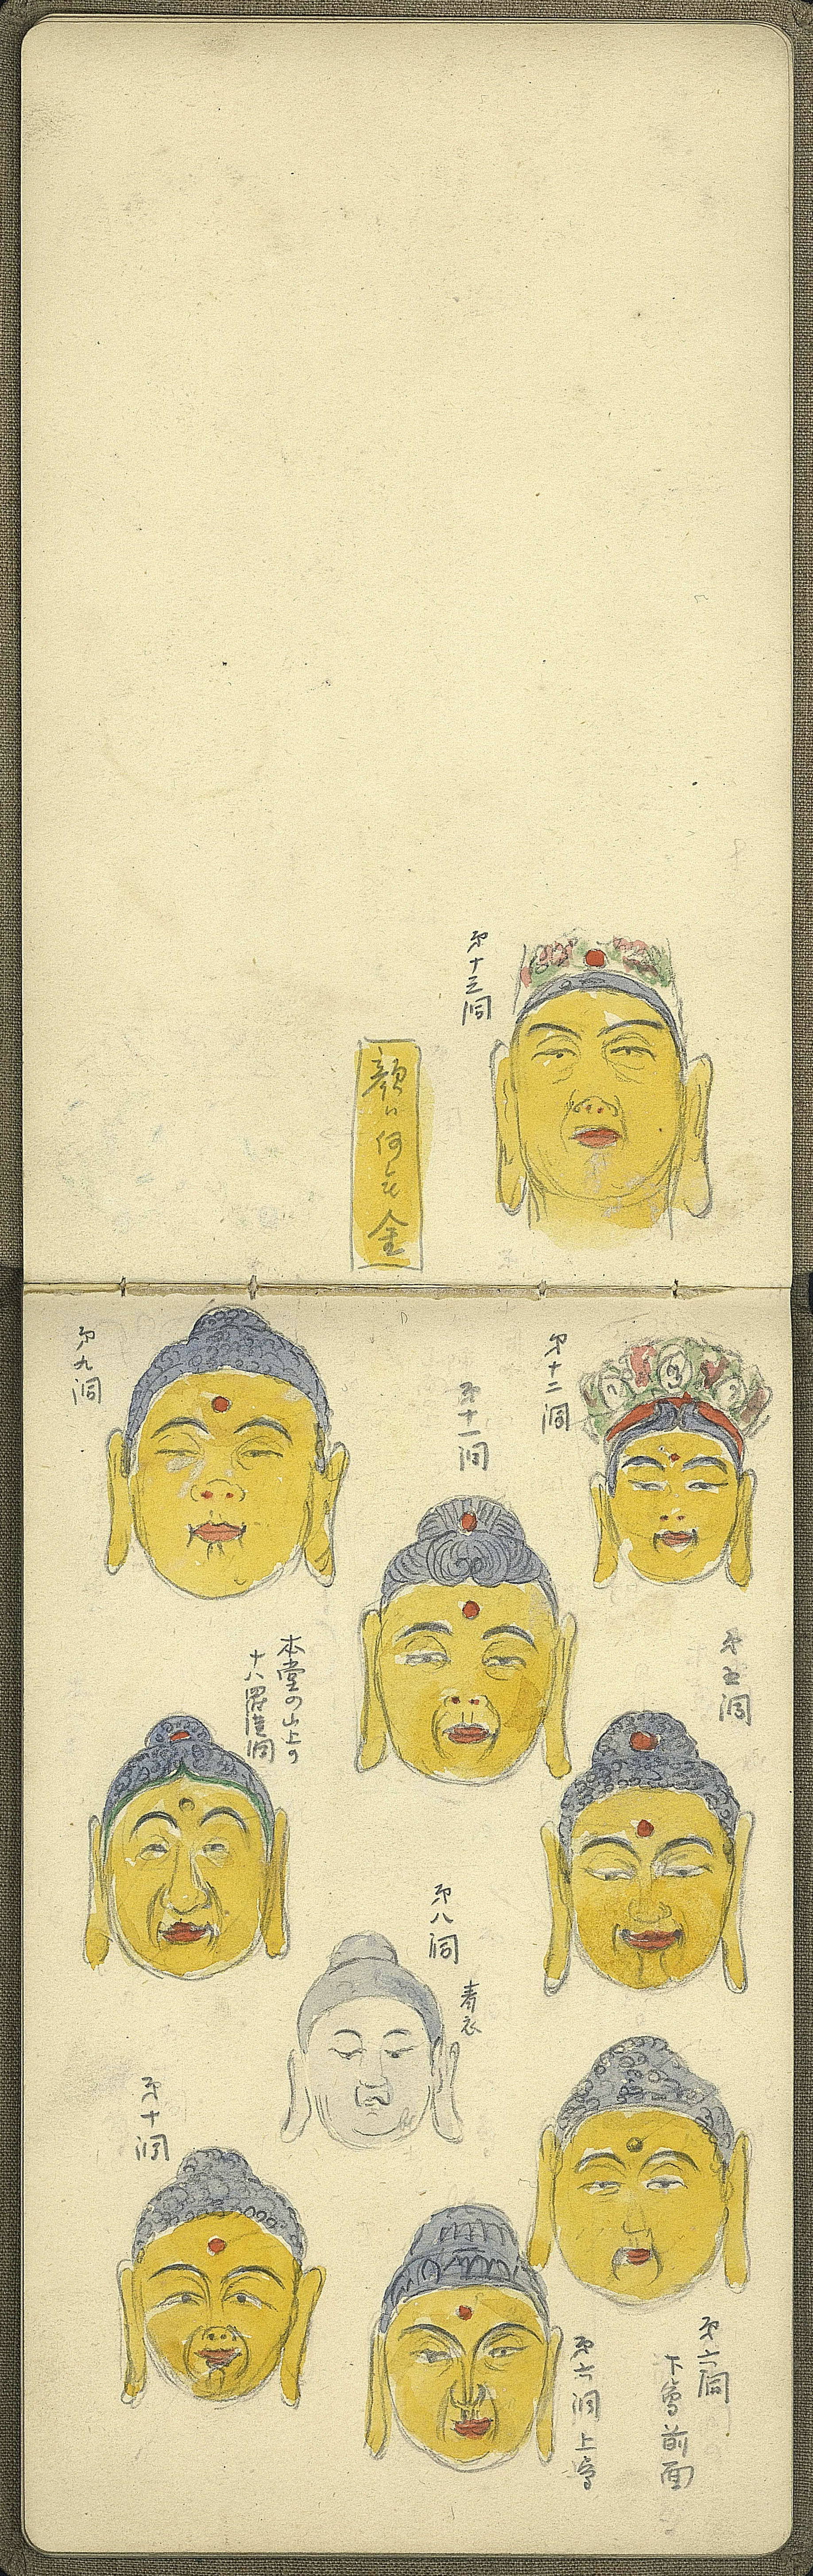 第十三洞
顔ハ何レモ金
第十二洞
第十一洞
第九洞
第五洞
本堂の山上の
十八羅漢洞
第八洞
青衣
第十洞
第六洞
下層前面
第六洞上層